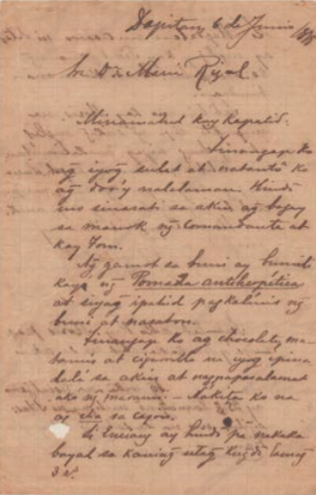 Dapitan 6 de Junio
Minamahal kong Kapatid:
Tinangap ko
ag iyog sulat at natanto ko
ag doo'y nalalaman. Hindi
mo sinasabi sa akin ag bagay
sa manok ng Comandante at
kay Tom.
Ag gamot sa buni ay humiñi
kayo ng Pomada antiherpética
at siyag ipahid pagkalinis ng
buni at masabon.
Tinangap ko ag chocolate, ma
tamis at na iyog ipina
dalá sa akin at nagpapasalamat
ako ng marami - Nakita ko na
ag cha sa cajón.
ay hindi pa nakaka
bayad sa kaniag utag kundi lamag